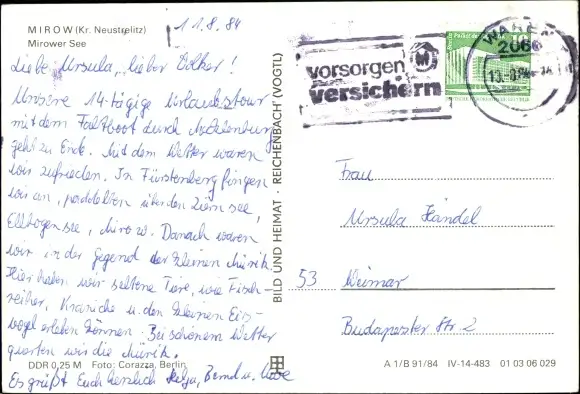 MIROW (Kr. Neustrelitz)
Mirower See
11.8.84
Liebe Ursula, lieber Volker!
Unsere 14-tägige Urlaubstour
mit dem Faltboot durch Mecklenburg
geht zu Ende. Mit dem Wetter waren
wir zufrieden. In Fürstenberg fingen
wir an, paddelten über den Ziernsee,
Ellbogensee, Mirow. Danach waren
wir in der Gegend der kleinen Müritz.
Hier haben wir seltene Tiere, wie Fisch-
reiher, Kraniche u. den kleinen Eis-
vogel erleben können. Bei schönem Wetter
querten wir die Müritz.
DDR 0,25 M Foto: Corazza, Berlin
Es grüßt Euch herzlich Helga, Bernd u.
BILD UND HEIMAT · REICHENBACH (VOGTL)
vorsorgen
versichern
M
WAREN
2060
10
Frau
Ursula Händel
53 Weimar
Budapester Str. 2
A 1/B 91/84 IV-14-483 01 03 06 029